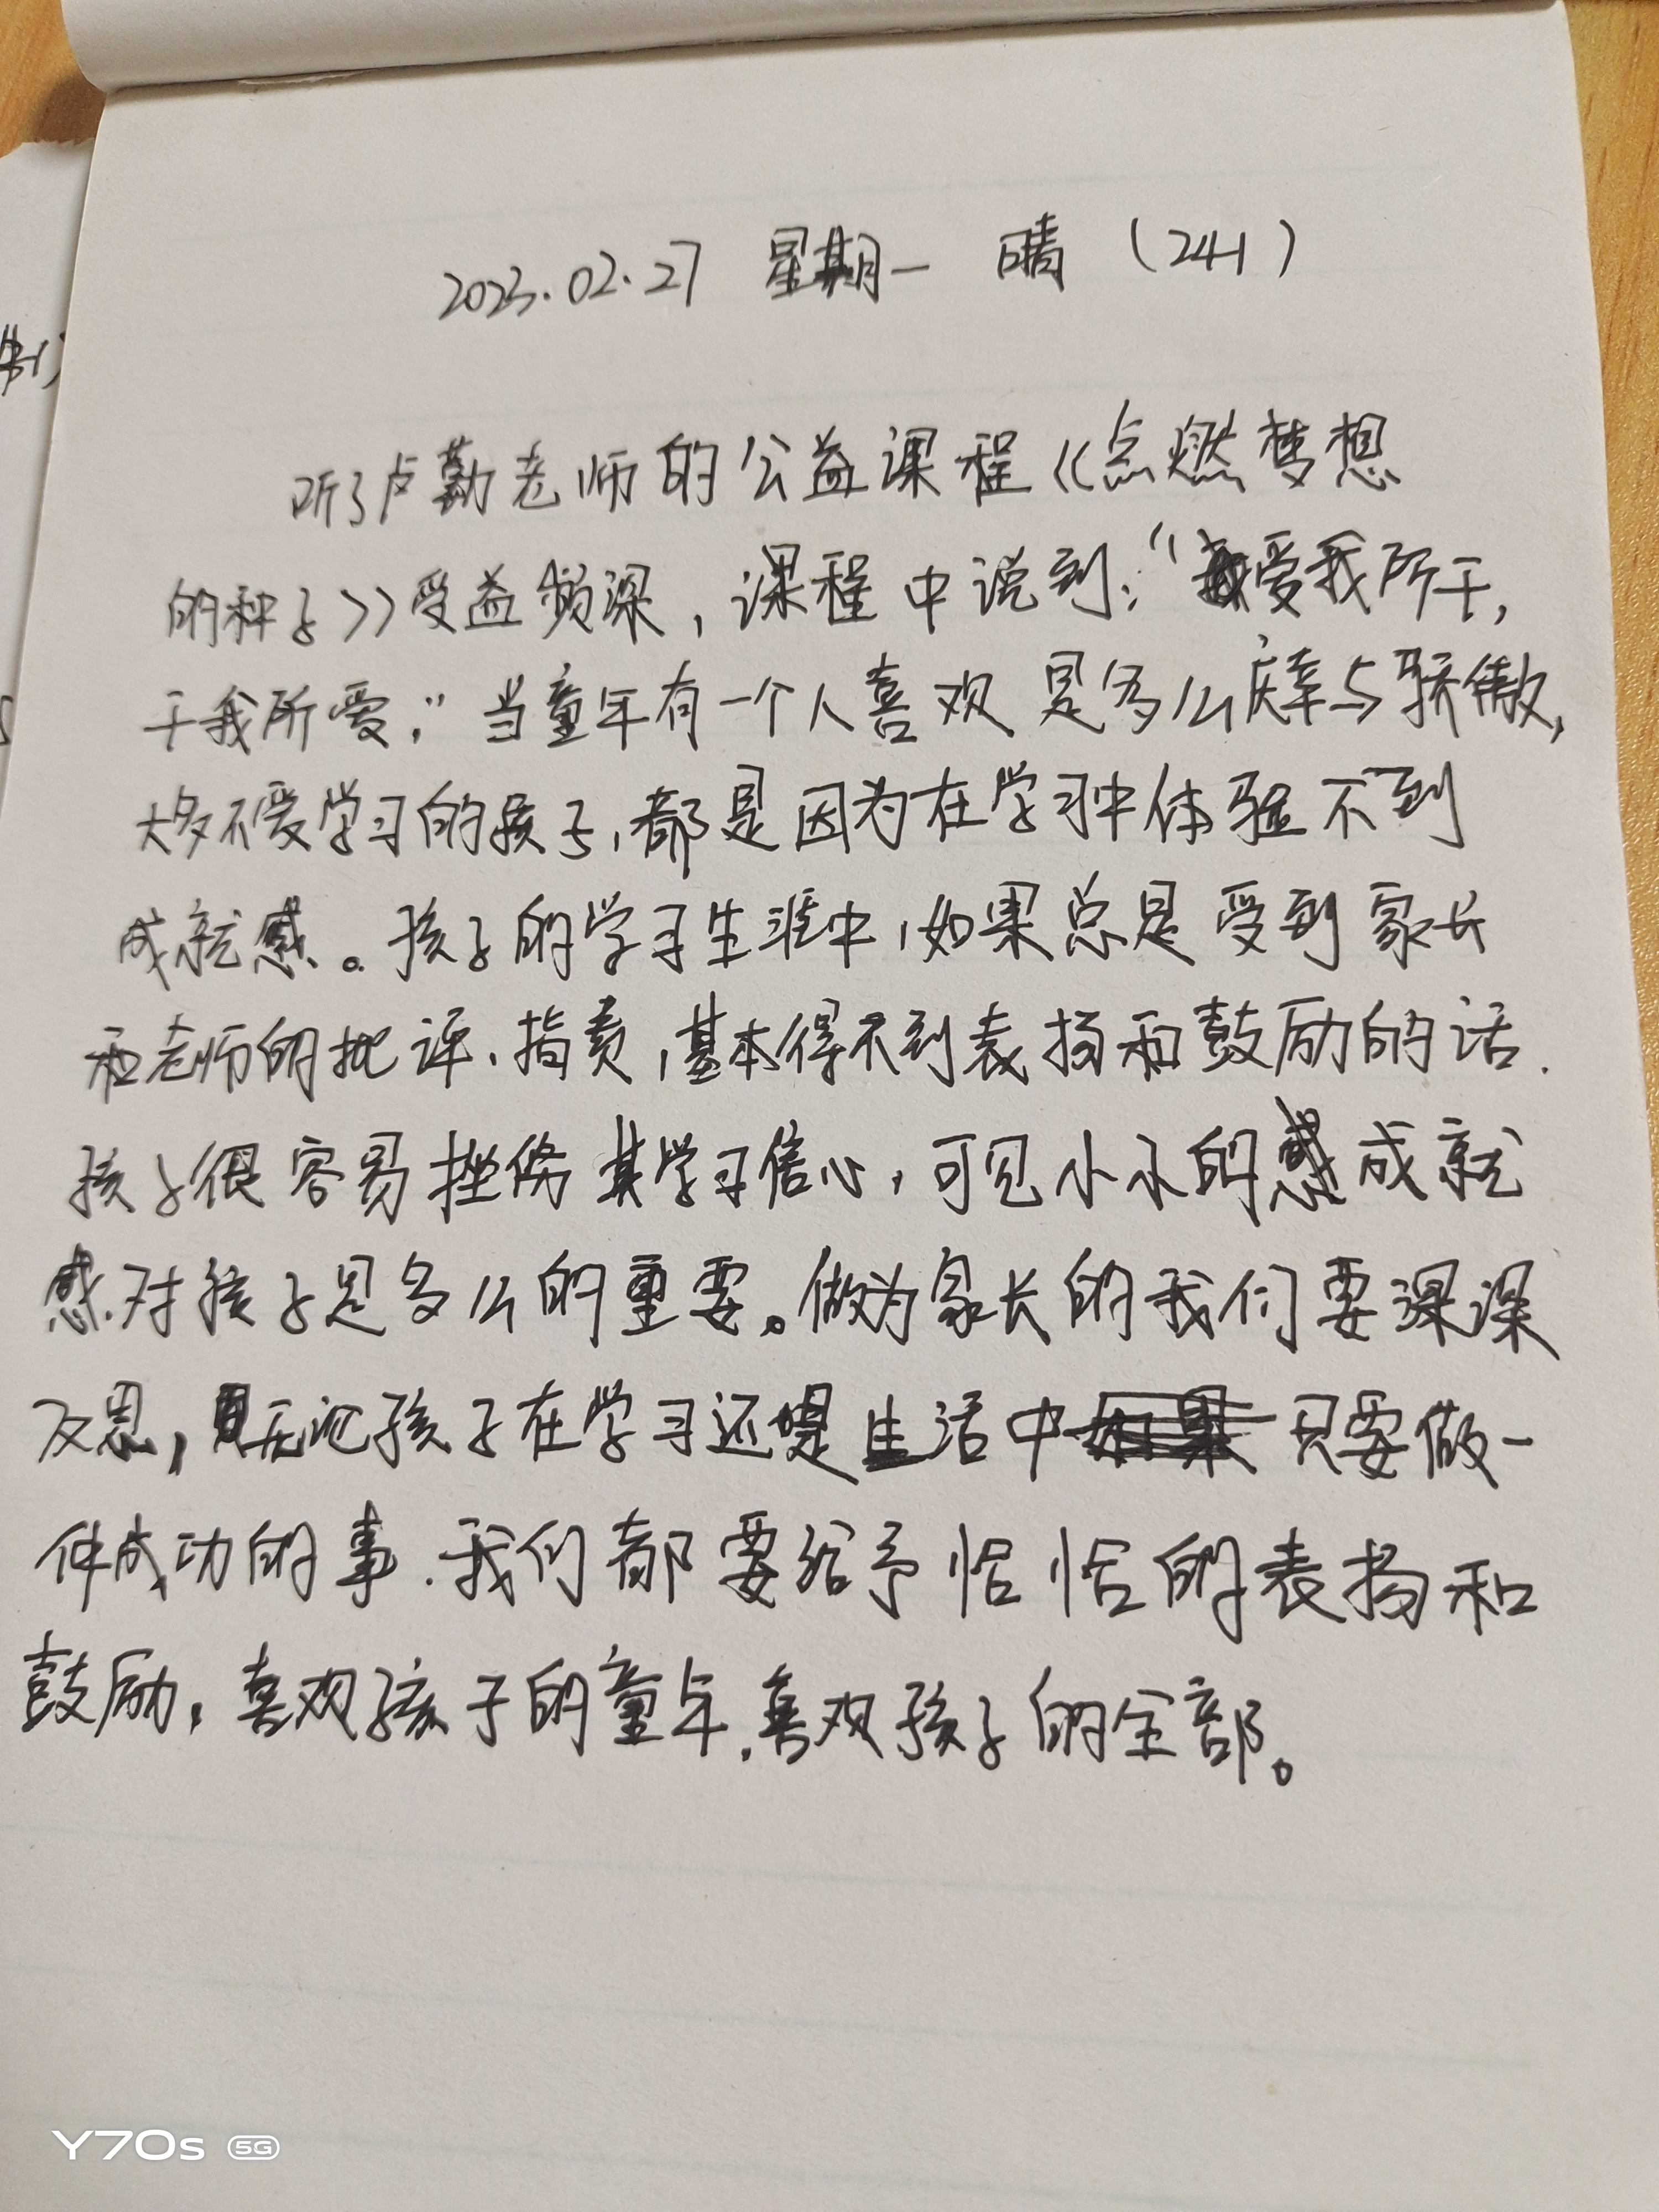 2023.02.27 星期一 晴 (241)
听了卢勤老师的公益课程《点燃梦想
的种子》受益频深，课程中说到："爱我所干，
干我所爱，"当童年有一个人喜欢是多么庆幸与骄傲，
大多不爱学习的孩子，都是因为在学习中体验不到
成就感。孩子的学习生涯中，如果总是受到家长
和老师的批评、指责，基本得不到表扬和鼓励的话.
孩子很容易挫伤其学习信心，可见小小的感成就
感.对孩子是多么的重要。做为家长的我们要深深
反思，无论孩子在学习还是生活中只要做一
件成功的事.我们都要给予恰恰的表扬和
鼓励，喜欢孩子的童年.喜欢孩子的全部。
Y70s 5G